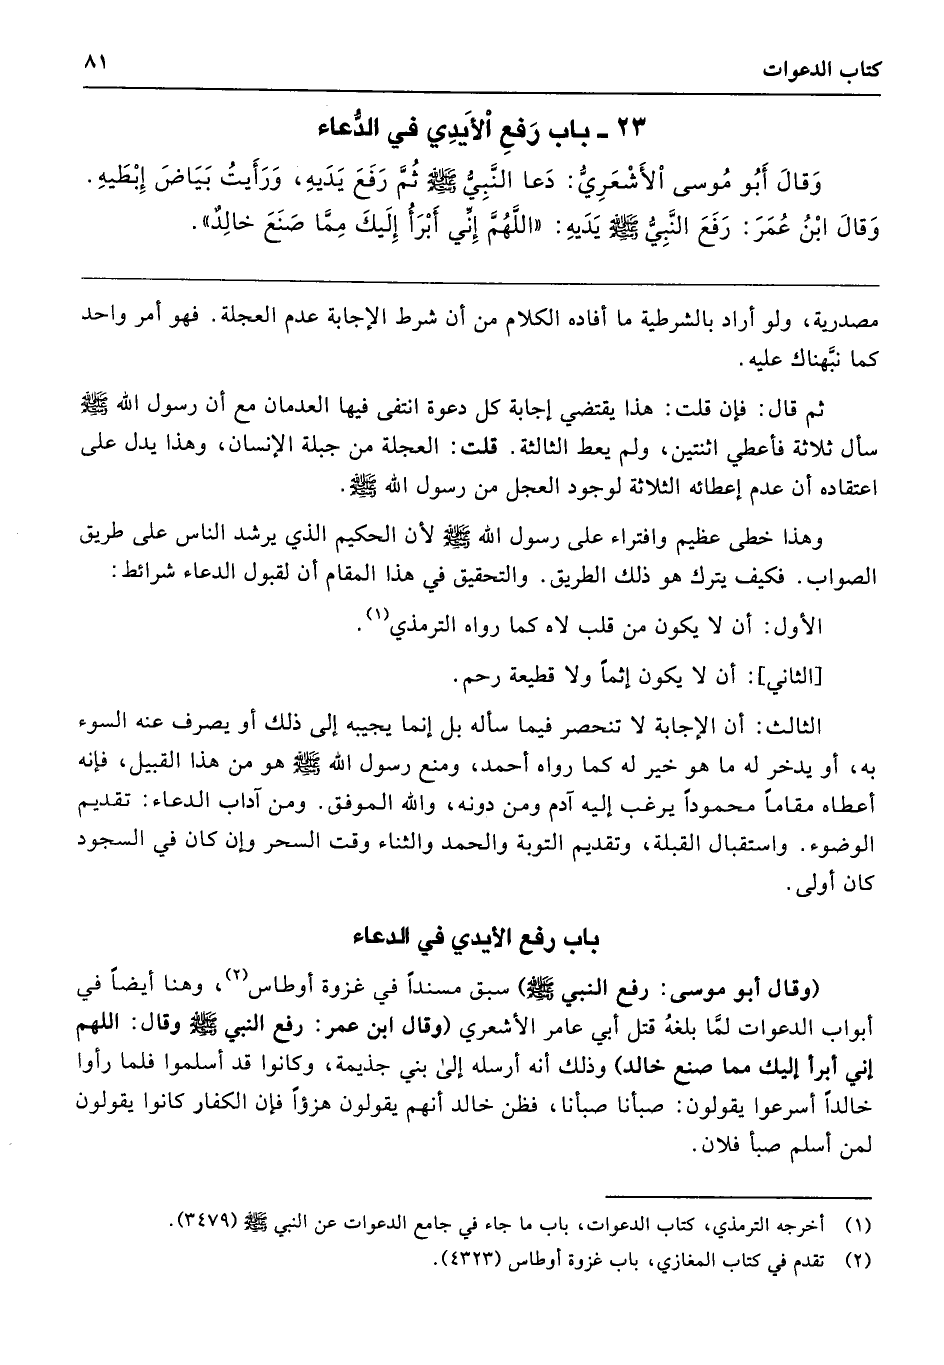 كتاب الدعوات ٨١
٢٣ ـ باب رَفعِ الأَيَدِي في الدُّعاء
وَقالَ أَبُو مُوسى الأَشْعَرِيُّ: دَعا النَّبِيُّ ﷺ ثُمَّ رَفَعَ يَدَيهِ، وَرَأَيتُ بَيَاضَ إِبْطَيهِ.
وَقالَ ابْنُ عُمَرَ: رَفَعَ النَّبِيُّ ﷺ يَدَيهِ: «اللَّهُمَّ إِنِّي أَبْرَأُ إِلَيكَ مِمَّا صَنَعَ خالِدٌ».
مصدرية، ولو أراد بالشرطية ما أفاده الكلام من أن شرط الإجابة عدم العجلة. فهو أمر واحد
كما نبَّهناك عليه.
ثم قال: فإن قلت: هذا يقتضي إجابة كل دعوة انتفى فيها العدمان مع أن رسول الله ﷺ
سأل ثلاثة فأعطي اثنتين، ولم يعط الثالثة. قلت: العجلة من جبلة الإنسان، وهذا يدل على
اعتقاده أن عدم إعطائه الثلاثة لوجود العجل من رسول الله ﷺ.
وهذا خطى عظيم وافتراء على رسول الله ﷺ لأن الحكيم الذي يرشد الناس على طريق
الصواب. فكيف يترك هو ذلك الطريق. والتحقيق في هذا المقام أن لقبول الدعاء شرائط:
الأول: أن لا يكون من قلب لاه كما رواه الترمذي(١).
[الثاني]: أن لا يكون إثماً ولا قطيعة رحم.
الثالث: أن الإجابة لا تنحصر فيما سأله بل إنما يجيبه إلى ذلك أو يصرف عنه السوء
به، أو يدخر له ما هو خير له كما رواه أحمد، ومنع رسول الله ﷺ هو من هذا القبيل، فإنه
أعطاه مقاماً محموداً يرغب إليه آدم ومن دونه، والله الموفق. ومن آداب الدعاء: تقديم
الوضوء. واستقبال القبلة، وتقديم التوبة والحمد والثناء وقت السحر وإن كان في السجود
كان أولى.
باب رفع الأيدي في الدعاء
(وقال أبو موسى: رفع النبي ﷺ) سبق مسنداً في غزوة أوطاس(٢)، وهنا أيضاً في
أبواب الدعوات لمَّا بلغهُ قتل أبي عامر الأشعري (وقال ابن عمر: رفع النبي ﷺ وقال: اللهم
إني أبرأ إليك مما صنع خالد) وذلك أنه أرسله إلىٰ بني جذيمة، وكانوا قد أسلموا فلما رأوا
خالداً أسرعوا يقولون: صبأنا صبأنا، فظن خالد أنهم يقولون هزؤاً فإن الكفار كانوا يقولون
لمن أسلم صبأ فلان.
(١) أخرجه الترمذي، كتاب الدعوات، باب ما جاء في جامع الدعوات عن النبي ﷺ (٣٤٧٩).
(٢) تقدم في كتاب المغازي، باب غزوة أوطاس (٤٣٢٣).